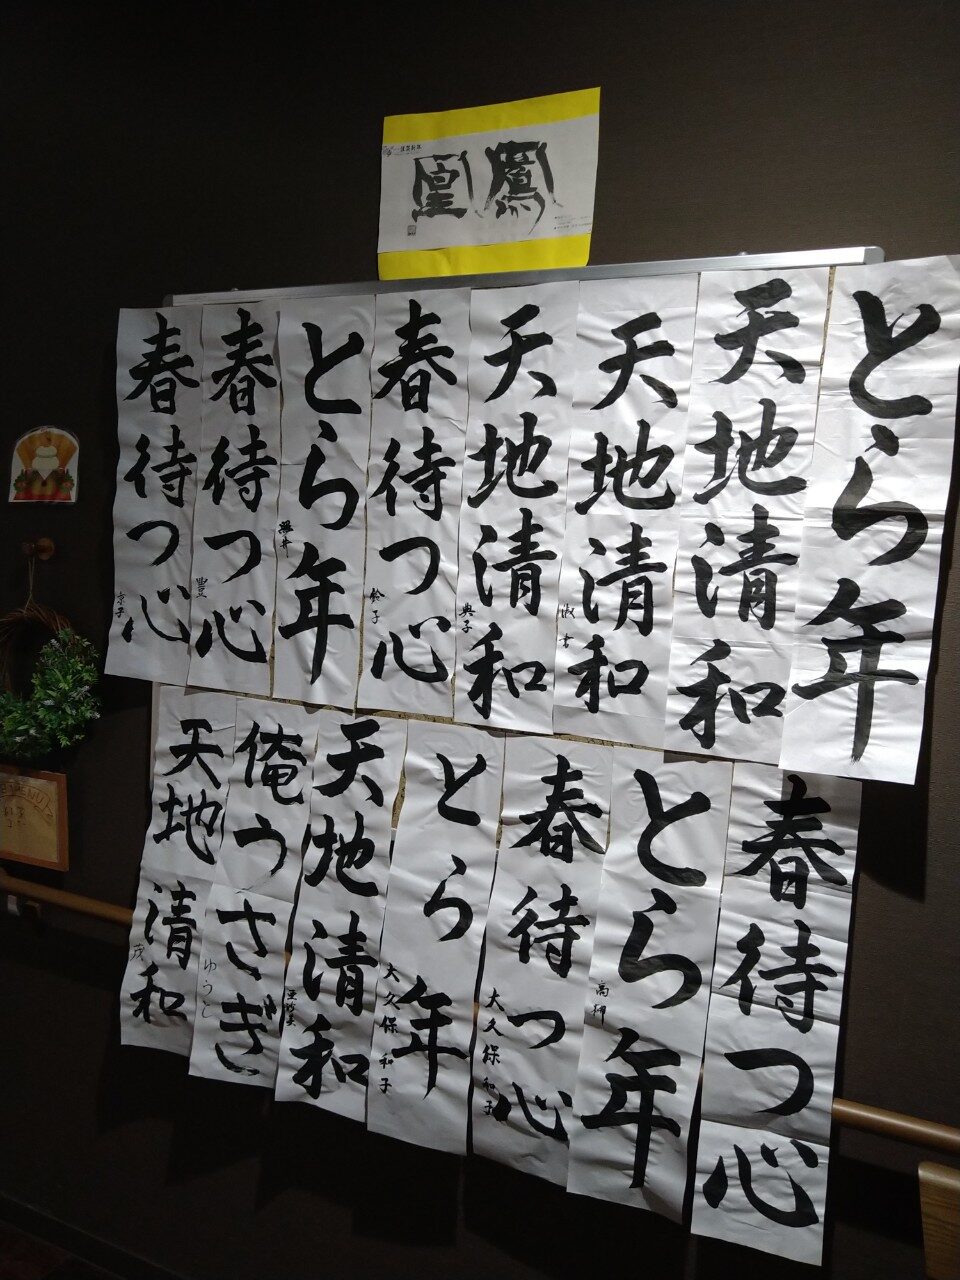 鳳凰
とら年
天地清和
天地清和
淑書
天地清和
典子
春待つ心
鈴子
とら年
春待つ心
豊
春待つ心
京子
春待つ心
とら年
高柳
春待つ心
大久保和子
とら年
大久保和子
天地清和
俺うさぎ
ゆうと
天地清和
茂